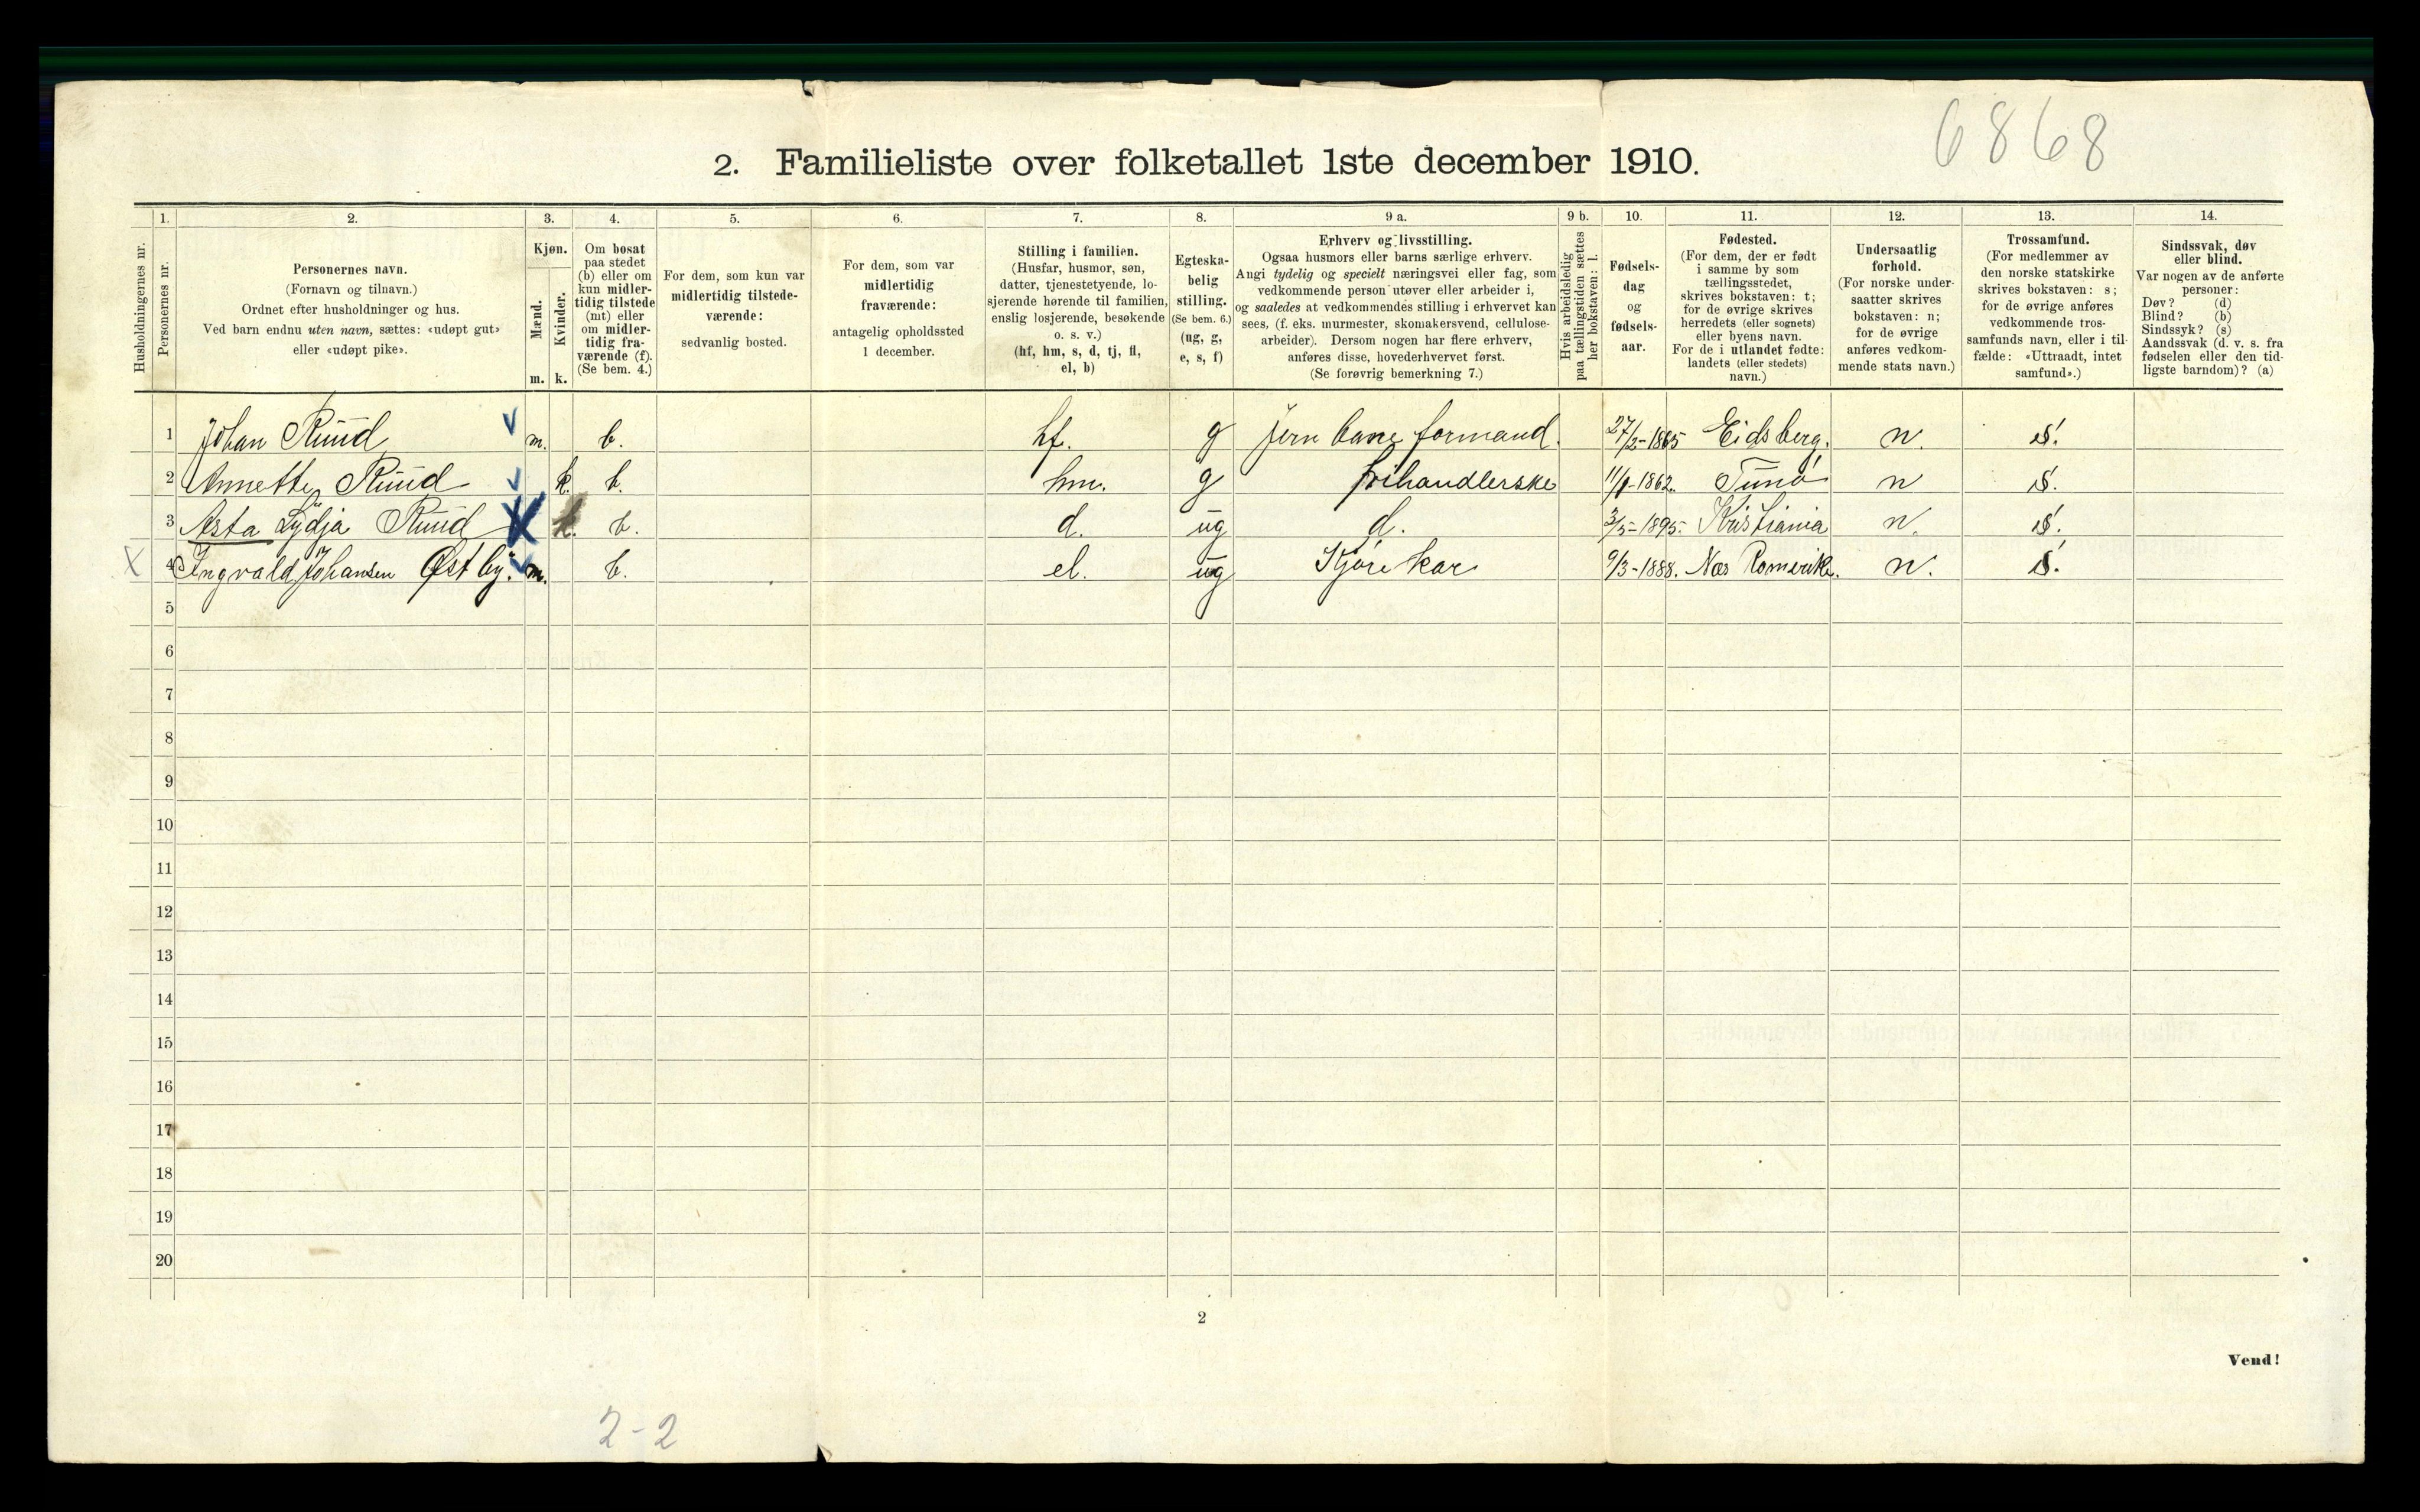 6868
2. Familieliste over folketallet 1ste december 1910.
1. 2. 3. 4. 5. 6. 7. 8. 9 a. 9 b. 10. 11. 12. 13. 14.
Husholdningernes nr.
Personernes nr.
Personernes navn.
(Fornavn og tilnavn.)
Ordnet efter husholdninger og hus.
Ved barn endnu uten navn, sættes: «udøpt gut»
eller «udøpt pike».
Kjøn.
Mænd.
Kvinder.
m. k.
Om bosat
paa stedet
(b) eller om
kun midler-
tidig tilstede
(mt) eller
om midler-
tidig fra-
værende (f).
(Se bem. 4.)
For dem, som kun var
midlertidig tilstede-
værende:
sedvanlig bosted.
For dem, som var
midlertidig
fraværende:
antagelig opholdssted
1 december.
Stilling i familien.
(Husfar, husmor, søn,
datter, tjenestetyende, lo-
sjerende hørende til familien,
enslig losjerende, besøkende
o. s. v.)
(hf, hm, s, d, tj, fl,
el, b)
Egteska-
belig
stilling.
(Se bem. 6.)
(ug, g,
e, s, f)
Erhverv og livsstilling.
Ogsaa husmors eller barns særlige erhverv.
Angi tydelig og specielt næringsvei eller fag, som
vedkommende person utøver eller arbeider i,
og saaledes at vedkommendes stilling i erhvervet kan
sees, (f. eks. murmester, skomakersvend, cellulose-
arbeider). Dersom nogen har flere erhverv,
anføres disse, hovederhvervet først.
(Se forøvrig bemerkning 7.)
Hvis arbeidsledig
paa tællingstiden sættes
her bokstaven: l.
Fødsels-
dag
og
fødsels-
aar.
Fødested.
(For dem, der er født
i samme by som
tællingsstedet,
skrives bokstaven: t;
for de øvrige skrives
herredets (eller sognets)
eller byens navn.
For de i utlandet fødte:
landets (eller stedets)
navn.)
Undersaatlig
forhold.
(For norske under-
saatter skrives
bokstaven: n;
for de øvrige
anføres vedkom-
mende stats navn.)
Trossamfund.
(For medlemmer av
den norske statskirke
skrives bokstaven: s;
for de øvrige anføres
vedkommende tros-
samfunds navn, eller i til-
fælde: «Uttraadt, intet
samfund».)
Sindssvak, døv
eller blind.
Var nogen av de anførte
personer:
Døv? (d)
Blind? (b)
Sindssyk? (s)
Aandssvak (d. v. s. fra
fødselen eller den tid-
ligste barndom)? (a)
1 Johan Ruud m. b. hf. g Jernbaneformand. 27/2-1865 Eidsberg. n. s.
2 Annette Ruud k. b. hm. g frihandlerske 1862. Tunø n s.
3 Asta Lydja Ruud k. b. d. ug d. 3/5-1895. Kristiania n. s.
X 4 Ingvald Johansen Østby. m. b. el. ug Kjørekar 9/3-1888. Næs Romerike. n. s.
5
6
7
8
9
10
11
12
13
14
15
16
17
18
19
20
2
Vend!
2-2